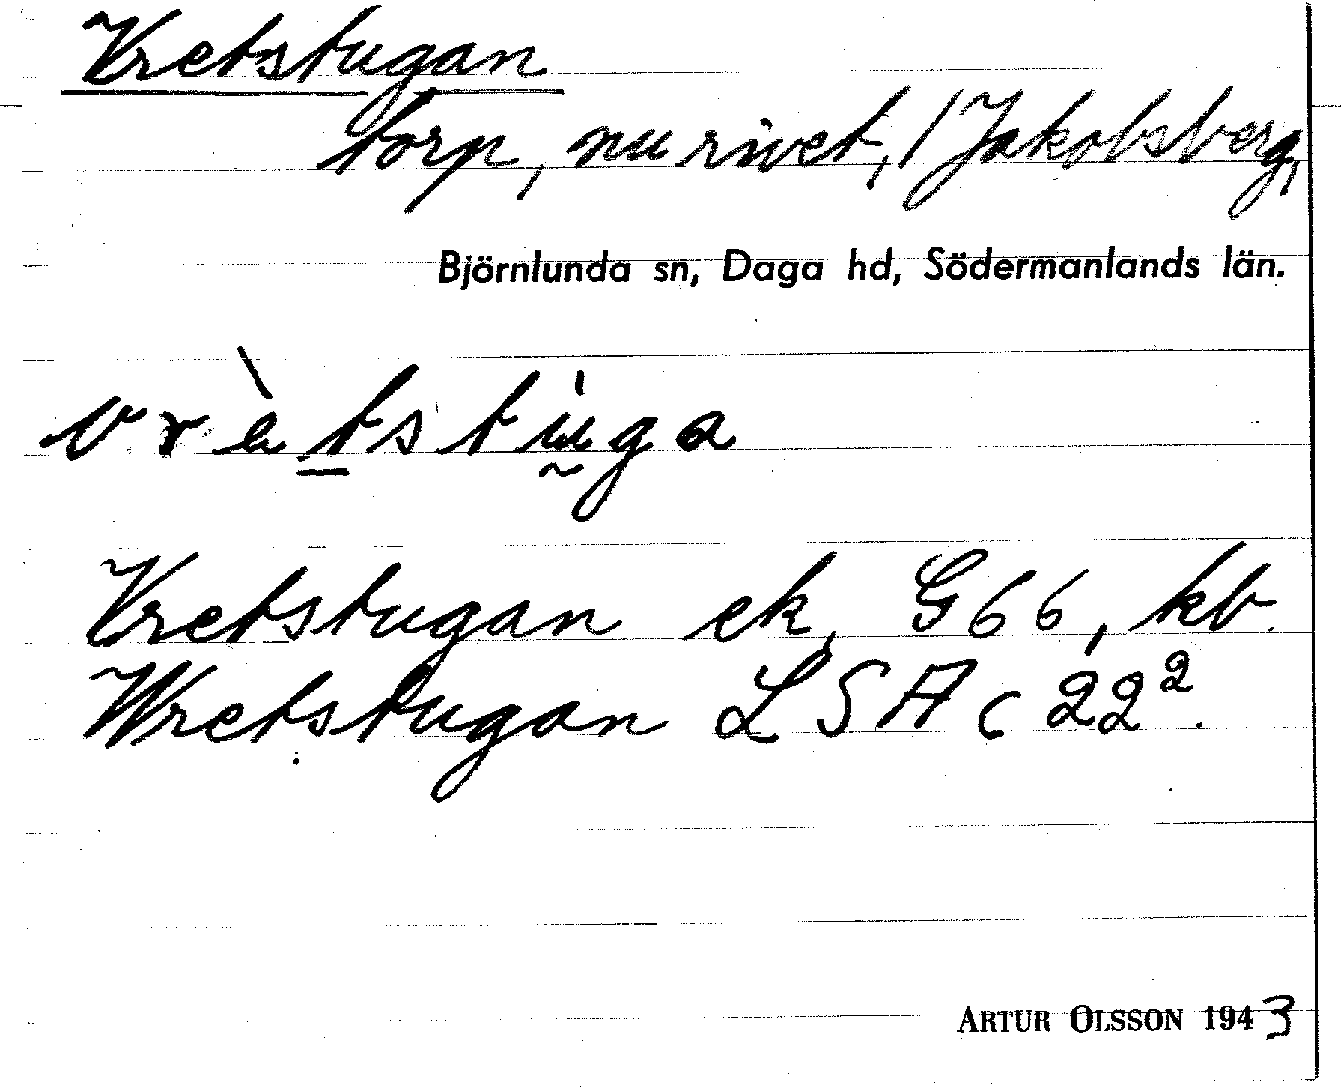 Vretstugan
torp, nu rivet, / Jakobsberg,
Björnlunda sn, Daga hd, Södermanlands län.
vrètstùga
Vretstugan ek, G66, kb.
Wretstugan LSA c 22².
ARTUR OLSSON 1943